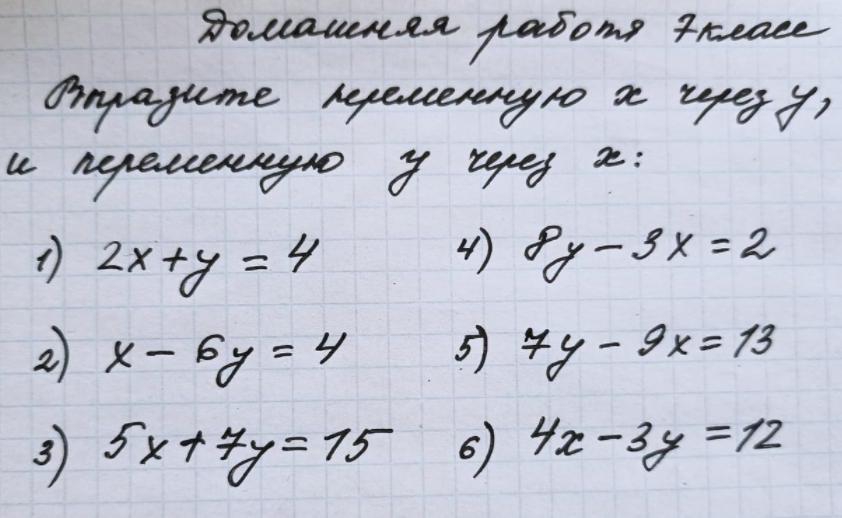 Домашняя работа 7 класс
Выразите переменную x через y,
и переменную y через x:
1) 2x + y = 4
4) 8y - 3x = 2
2) x - 6y = 4
5) 7y - 9x = 13
3) 5x + 7y = 15
6) 4x - 3y = 12